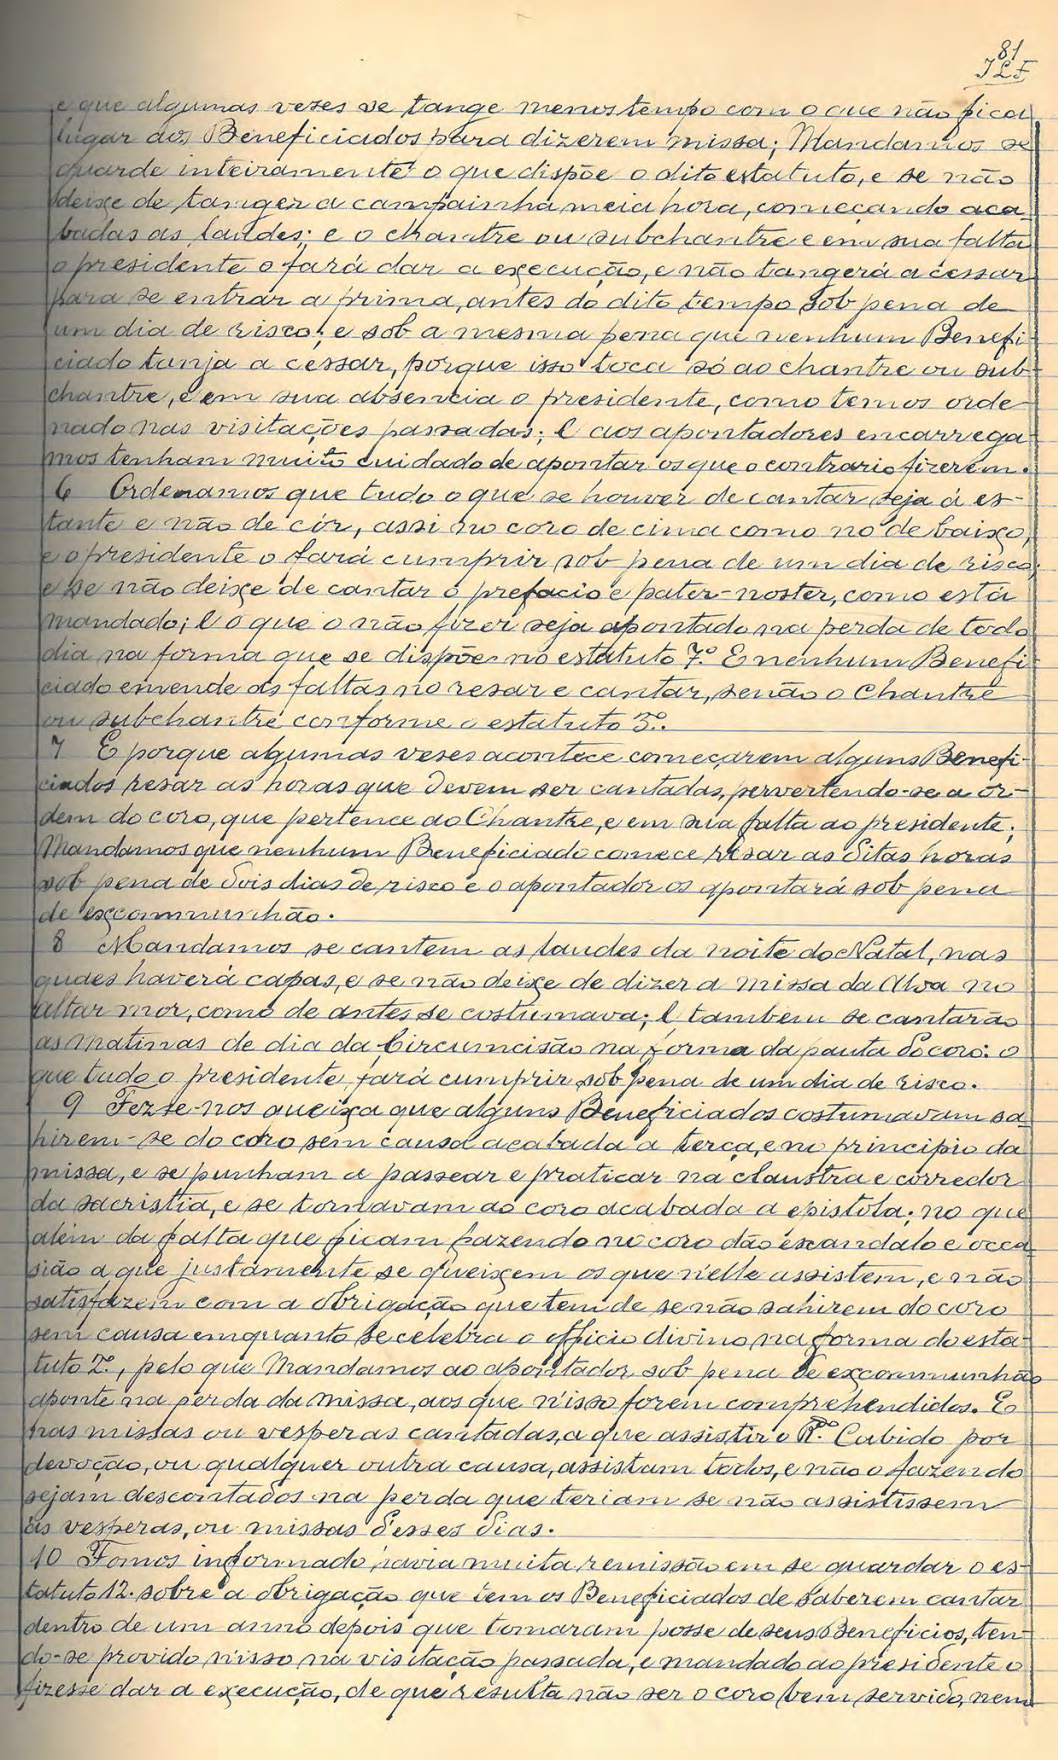 81
JLF
e que algumas veses se tange menos tempo com o que não fica
lugar aos Beneficiados para dizerem missa; Mandamos se
guarde inteiramente o que dispõe o dito estatuto, e se não
deixe de tanger a campainha meia hora, começando aca-
badas as laudes; e o chantre ou subchantre e em sua falta
o presidente o fará dar a execução, e não tangerá a cessar
para se entrar a prima, antes do dito tempo sob pena de
um dia de risco; e sob a mesma pena que nenhum Benefi-
ciado tanja a cessar, porque isso toca só ao chantre ou sub-
chantre, e em sua absencia o presidente, como temos orde-
nado nas visitações passadas; E aos apontadores encarrega-
mos tenham muito cuidado de apontar os que o contrario fizerem.
6 Ordenamos que tudo o que se houver de cantar seja á es-
tante e não de cór, assi no coro de cima como no de baixo,
e o presidente o fará cumprir sob pena de um dia de risco;
e se não deixe de cantar o prefacio e pater-noster, como está
mandado; E o que o não fizer seja apontado na perda de todo
dia na forma que se dispõe no estatuto 7.º E nenhum Benefi-
ciado emende as faltas no resar e cantar, senão o Chantre
ou subchantre conforme o estatuto 3.º.
7 E porque algumas veses acontece começarem alguns Benefi-
ciados resar as horas que devem ser cantadas, pervertendo-se a or-
dem do coro, que pertence ao Chantre, e em sua falta ao presidente;
Mandamos que nenhum Beneficiado comece resar as ditas horas
sob pena de dois dias de risco e o apontador os apontará sob pena
de excommunhão.
8 Mandamos se cantem as laudes da noite do Natal, nas
quaes haverá capas, e se não deixe de dizer a missa da Alva no
altar mor, como de antes se costumava; E tambem se cantarão
as matinas de dia da Circumcisão na forma da pauta do coro: o
que tudo o presidente fará cumprir sob pena de um dia de risco.
9 Fez-se-nos queixa que alguns Beneficiados costumavam sa-
hirem-se do coro sem causa acabada a terça, e no principio da
missa, e se punham a passear e praticar na claustra e corredor
da sacristia, e se tornavam ao coro acabada a epistola; no que
alem da falta que ficam fazendo no coro dão escandalo e occa-
sião a que justamente se queixem os que n'elle assistem, e não
satisfazem com a obrigação que tem de se não sahirem do coro
sem causa emquanto se celebra o officio divino na forma do esta-
tuto 2.º, pelo que Mandamos ao apontador sob pena de excommunhão
aponte na perda da missa, aos que n'isso forem comprehendidos. E
nas missas ou vesperas cantadas, a que assistir o R.do Cabido por
devoção, ou qualquer outra causa, assistam todos, e não o fazendo
sejam descontados na perda que teriam se não assistissem
ás vesperas, ou missas desses dias.
10 Fomos informado havia muita remissão em se guardar o es-
tatuto 12. sobre a obrigação que tem os Beneficiados de saberem cantar
dentro de um anno depois que tomaram posse de seus Beneficios, ten-
do-se provido n'isso na visitação passada, e mandado ao presidente o
fizesse dar a execução, de que resulta não ser o coro bem servido, nem